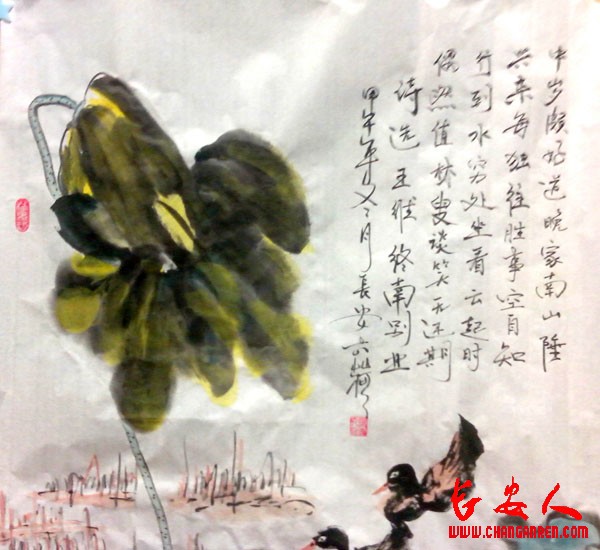 中岁颇好道晚家南山陲
兴来每独往胜事空自知
行到水穷处坐看云起时
偶然值林叟谈笑无还期
诗选王维终南别业
甲午年又月长安
长安人
WWW.CHANGANREN.COM